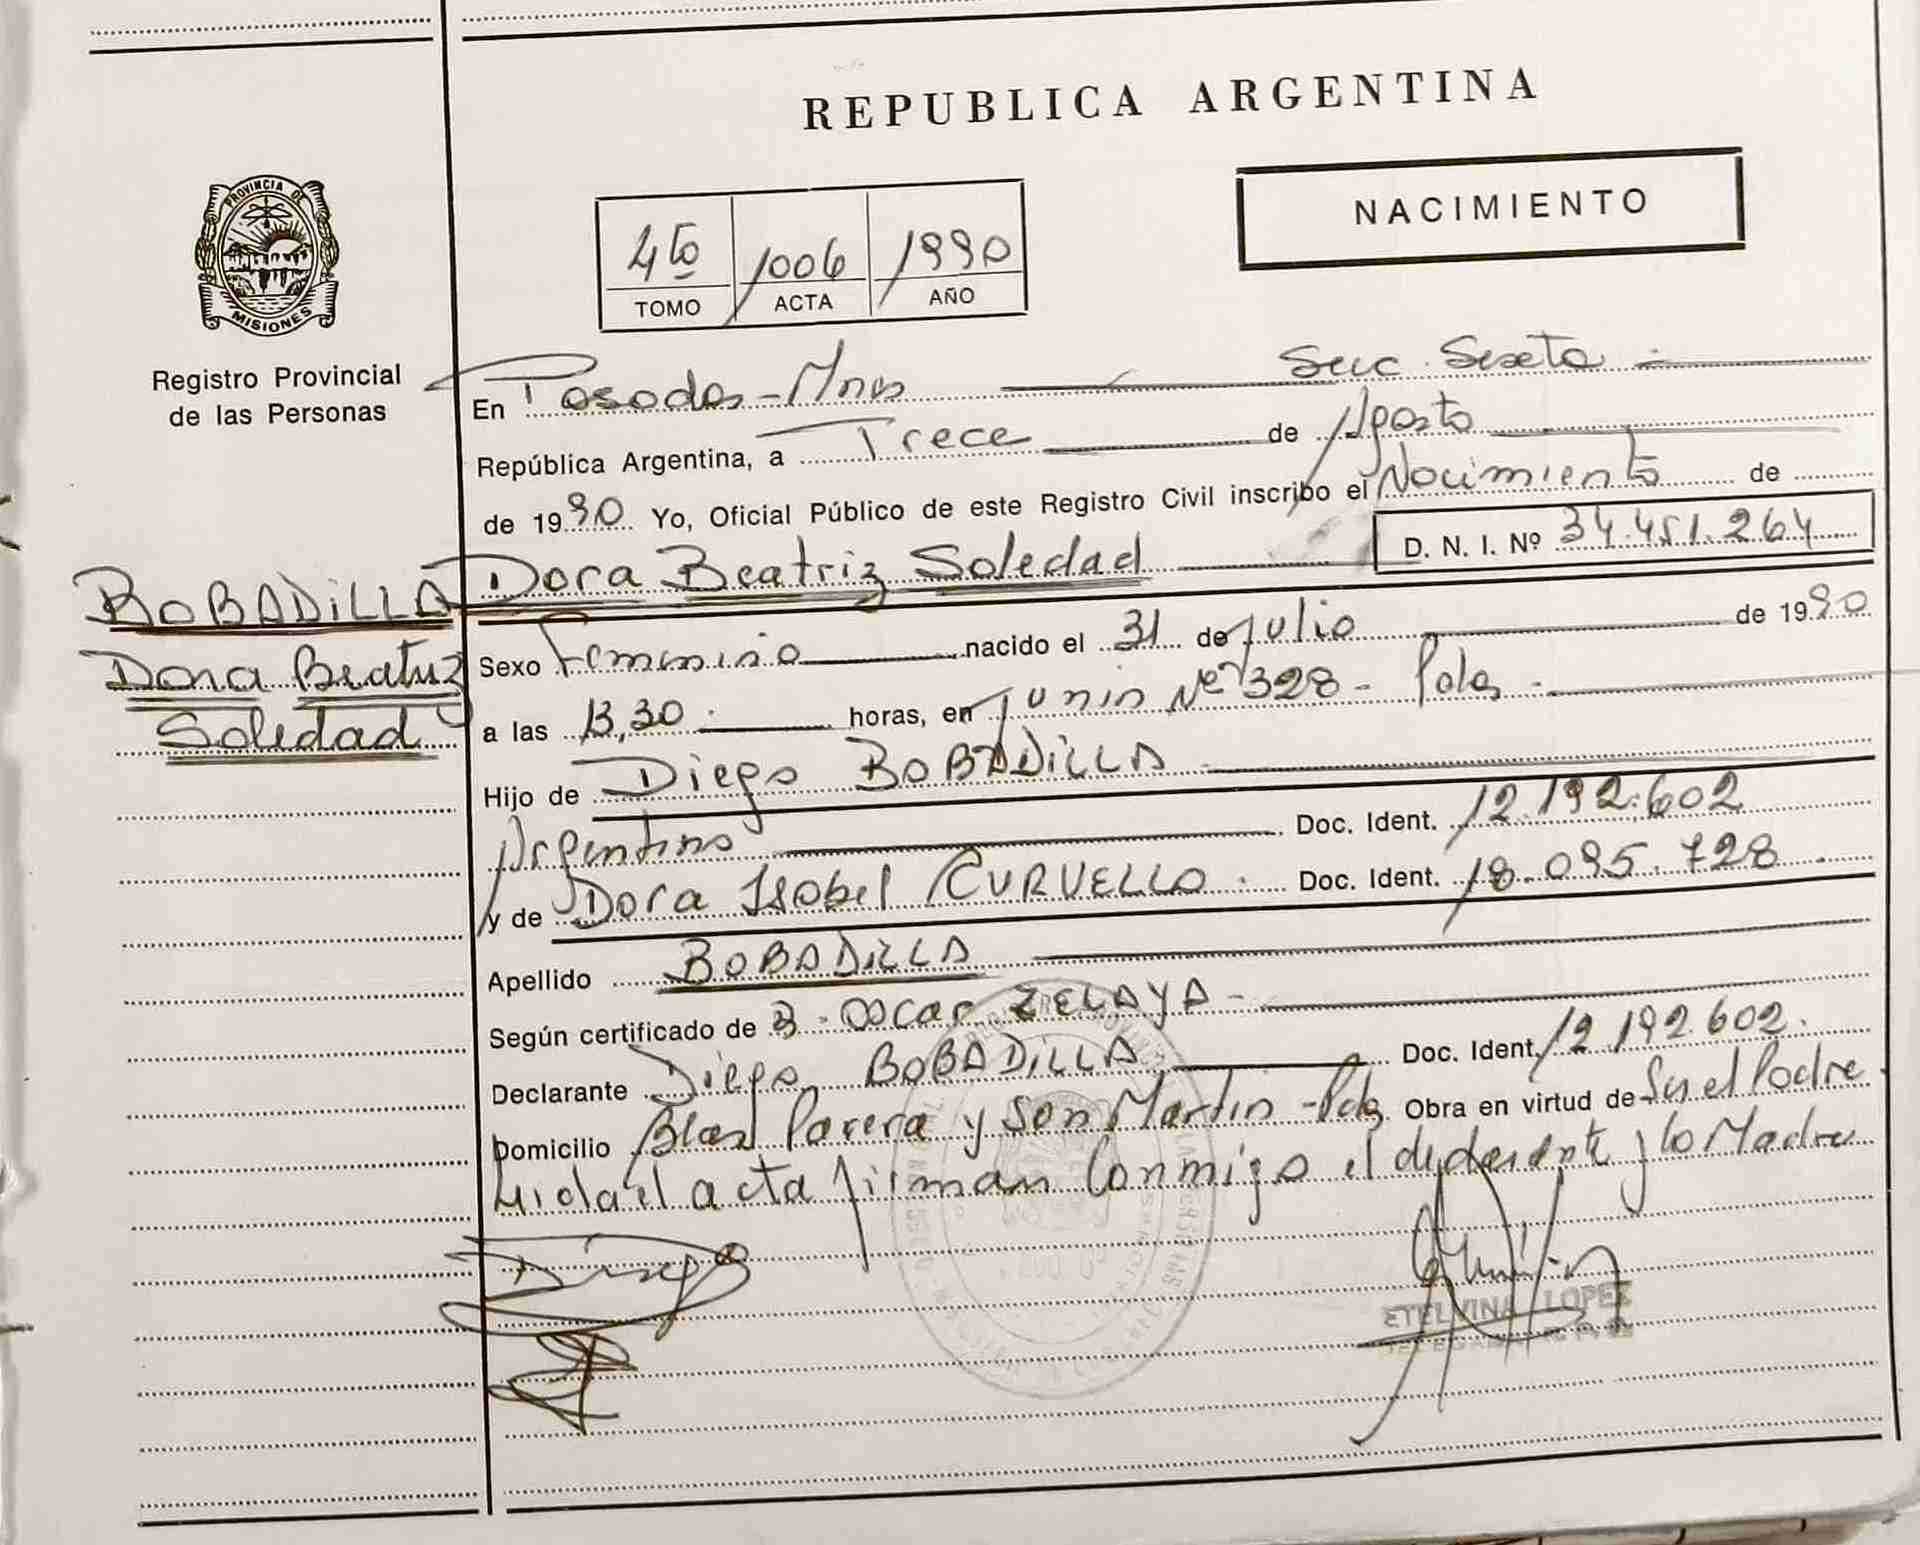 REPUBLICA ARGENTINA
NACIMIENTO
4to 1006 1990
TOMO ACTA AÑO
PROVINCIA DE
MISIONES
Registro Provincial
de las Personas
En Posadas - Mnes Secc. Sexta
República Argentina, a Trece de Agosto
de 1990 Yo, Oficial Público de este Registro Civil inscribo el Nacimiento de
D. N. I. Nº 34.451.264
BOBADILLA Dora Beatriz Soledad
Dora Beatriz
Soledad
Sexo Femenino nacido el 31 de Julio de 1990
a las 13,30 horas, en Junin Nº 328 - Pdas
Hijo de Diego BOBADILLA
Argentino Doc. Ident. 12.192.602
y de Dora Isabel CURVELLO Doc. Ident. 18.095.728
Apellido BOBADILLA
Según certificado de Oscar ZELAYA
Declarante Diego BOBADILLA Doc. Ident. 12.192.602
Domicilio Blas Parera y San Martin - Pdas Obra en virtud de Ser el Padre
Leida el acta firman Conmigo el declarante y la Madre
Diego
ETELVINA LOPEZ